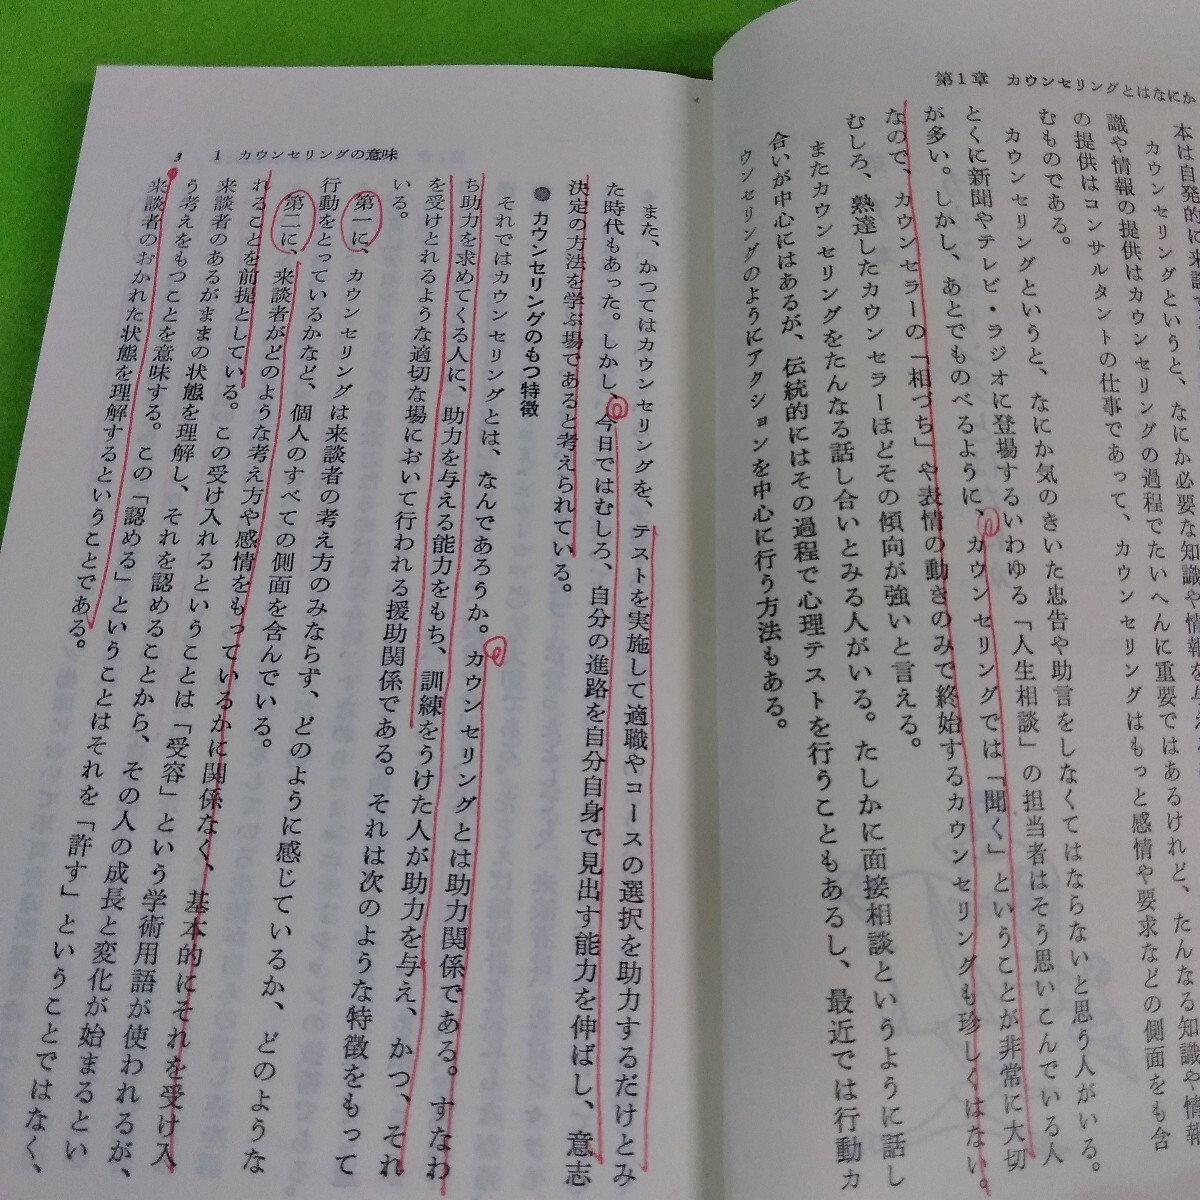 第1章　カウンセリングとはなにか
本は自発的に来談
カウンセリングというと、なにか必要な知識や情報を与え
識や情報の提供はカウンセリングの過程でたいへんに重要ではあるけれど、たんなる知識や情報
の提供はコンサルタントの仕事であって、カウンセリングはもっと感情や要求などの側面をも含
むものである。
カウンセリングというと、なにか気のきいた忠告や助言をしなくてはならないと思う人がいる。
とくに新聞やテレビ・ラジオに登場するいわゆる「人生相談」の担当者はそう思いこんでいる人
が多い。しかし、あとでものべるように、カウンセリングでは「聞く」ということが非常に大切
なので、カウンセラーの「相づち」や表情の動きのみで終始するカウンセリングも珍しくはない。
むしろ、熟達したカウンセラーほどその傾向が強いと言える。
またカウンセリングをたんなる話し合いとみる人がいる。たしかに面接相談というように話し
合いが中心にはあるが、伝統的にはその過程で心理テストを行うこともあるし、最近では行動カ
ウンセリングのようにアクションを中心に行う方法もある。
1　カウンセリングの意味
3
また、かつてはカウンセリングを、テストを実施して適職やコースの選択を助力するだけとみ
た時代もあった。しかし、今日ではむしろ、自分の進路を自分自身で見出す能力を伸ばし、意志
決定の方法を学ぶ場であると考えられている。
●カウンセリングのもつ特徴
それではカウンセリングとは、なんであろうか。カウンセリングとは助力関係である。すなわ
ち助力を求めてくる人に、助力を与える能力をもち、訓練をうけた人が助力を与え、かつ、それ
を受けとれるような適切な場において行われる援助関係である。それは次のような特徴をもって
いる。
第一に、カウンセリングは来談者の考え方のみならず、どのように感じているか、どのような
行動をとっているかなど、個人のすべての側面を含んでいる。
第二に、来談者がどのような考え方や感情をもっているかに関係なく、基本的にそれを受け入
れることを前提としている。この受け入れるということは「受容」という学術用語が使われるが、
来談者のあるがままの状態を理解し、それを認めることから、その人の成長と変化が始まるとい
う考えをもつことを意味する。この「認める」ということはそれを「許す」ということではなく、
来談者のおかれた状態を理解するということである。